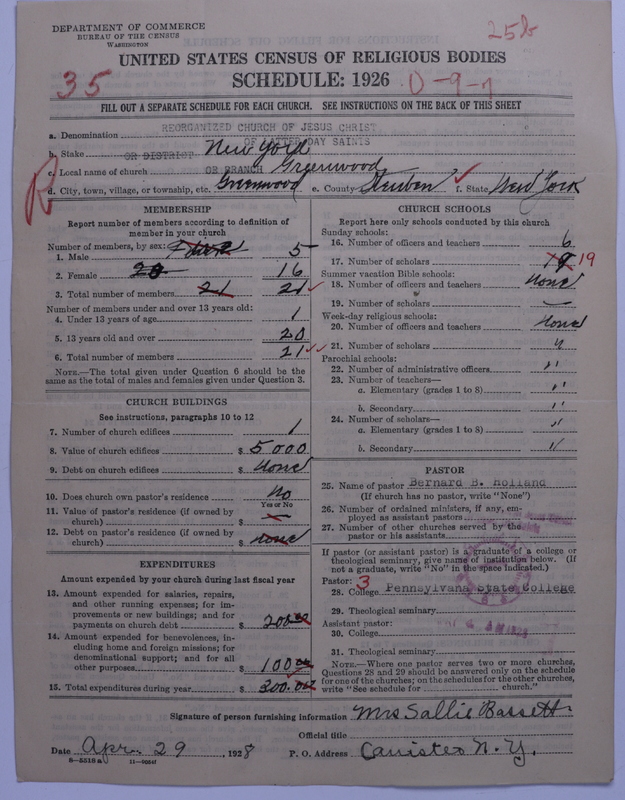 DEPARTMENT OF COMMERCE
BUREAU OF THE CENSUS
WASHINGTON
25b
UNITED STATES CENSUS OF RELIGIOUS BODIES
35 SCHEDULE: 1926 0-9-7
FILL OUT A SEPARATE SCHEDULE FOR EACH CHURCH. SEE INSTRUCTIONS ON THE BACK OF THIS SHEET
REORGANIZED CHURCH OF JESUS CHRIST
a. Denomination
OF LATTER DAY SAINTS
b. Stake OR DISTRICT New York
c. Local name of church OR BRANCH Greenwood
d. City, town, village, or township, etc. Greenwood e. County Steuben f. State New York
R
MEMBERSHIP
Report number of members according to definition of
member in your church
Number of members, by sex:
1. Male 5
2. Female 20 16
3. Total number of members 21 21
Number of members under and over 13 years old:
4. Under 13 years of age 1
5. 13 years old and over 20
6. Total number of members 21
NOTE.—The total given under Question 6 should be the
same as the total of males and females given under Question 3.
CHURCH BUILDINGS
See instructions, paragraphs 10 to 12
7. Number of church edifices 1
8. Value of church edifices $ 5000
9. Debt on church edifices $ None
10. Does church own pastor's residence No
Yes or No
11. Value of pastor's residence (if owned by
church) $
12. Debt on pastor's residence (if owned by
church) $ None
EXPENDITURES
Amount expended by your church during last fiscal year
13. Amount expended for salaries, repairs,
and other running expenses; for im-
provements or new buildings; and for
payments on church debt $ 200.00
14. Amount expended for benevolences, in-
cluding home and foreign missions; for
denominational support; and for all
other purposes $ 100.00
15. Total expenditures during year $ 300.00
CHURCH SCHOOLS
Report here only schools conducted by this church
Sunday schools:
16. Number of officers and teachers 6
17. Number of scholars 19
Summer vacation Bible schools:
18. Number of officers and teachers None
19. Number of scholars —
Week-day religious schools:
20. Number of officers and teachers None
21. Number of scholars "
Parochial schools:
22. Number of administrative officers "
23. Number of teachers—
a. Elementary (grades 1 to 8) "
b. Secondary "
24. Number of scholars—
a. Elementary (grades 1 to 8) "
b. Secondary "
PASTOR
25. Name of pastor Bernard B. Holland
(If church has no pastor, write "None")
26. Number of ordained ministers, if any, em-
ployed as assistant pastors
27. Number of other churches served by the
pastor or his assistants
If pastor (or assistant pastor) is a graduate of a college or
theological seminary, give name of institution below. (If
not a graduate, write "No" in the space indicated.)
Pastor: 3
28. College Pennsylvana State College
29. Theological seminary
Assistant pastor:
30. College
31. Theological seminary
NOTE.—Where one pastor serves two or more churches,
Questions 28 and 29 should be answered only on the schedule
for one of the churches; on the schedules for the other churches,
write "See schedule for church."
Signature of person furnishing information Mrs Sallie Bassett
Official title
Date Apr. 29, 1928 P. O. Address Canisteo N.Y.
8-5518a 11-9064f